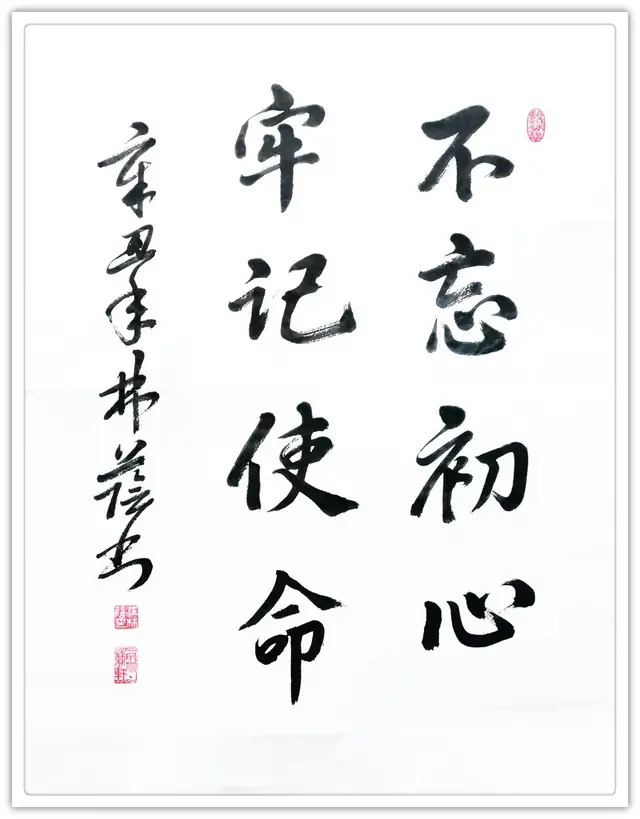 不忘初心
牢记使命
辛丑年林荫书